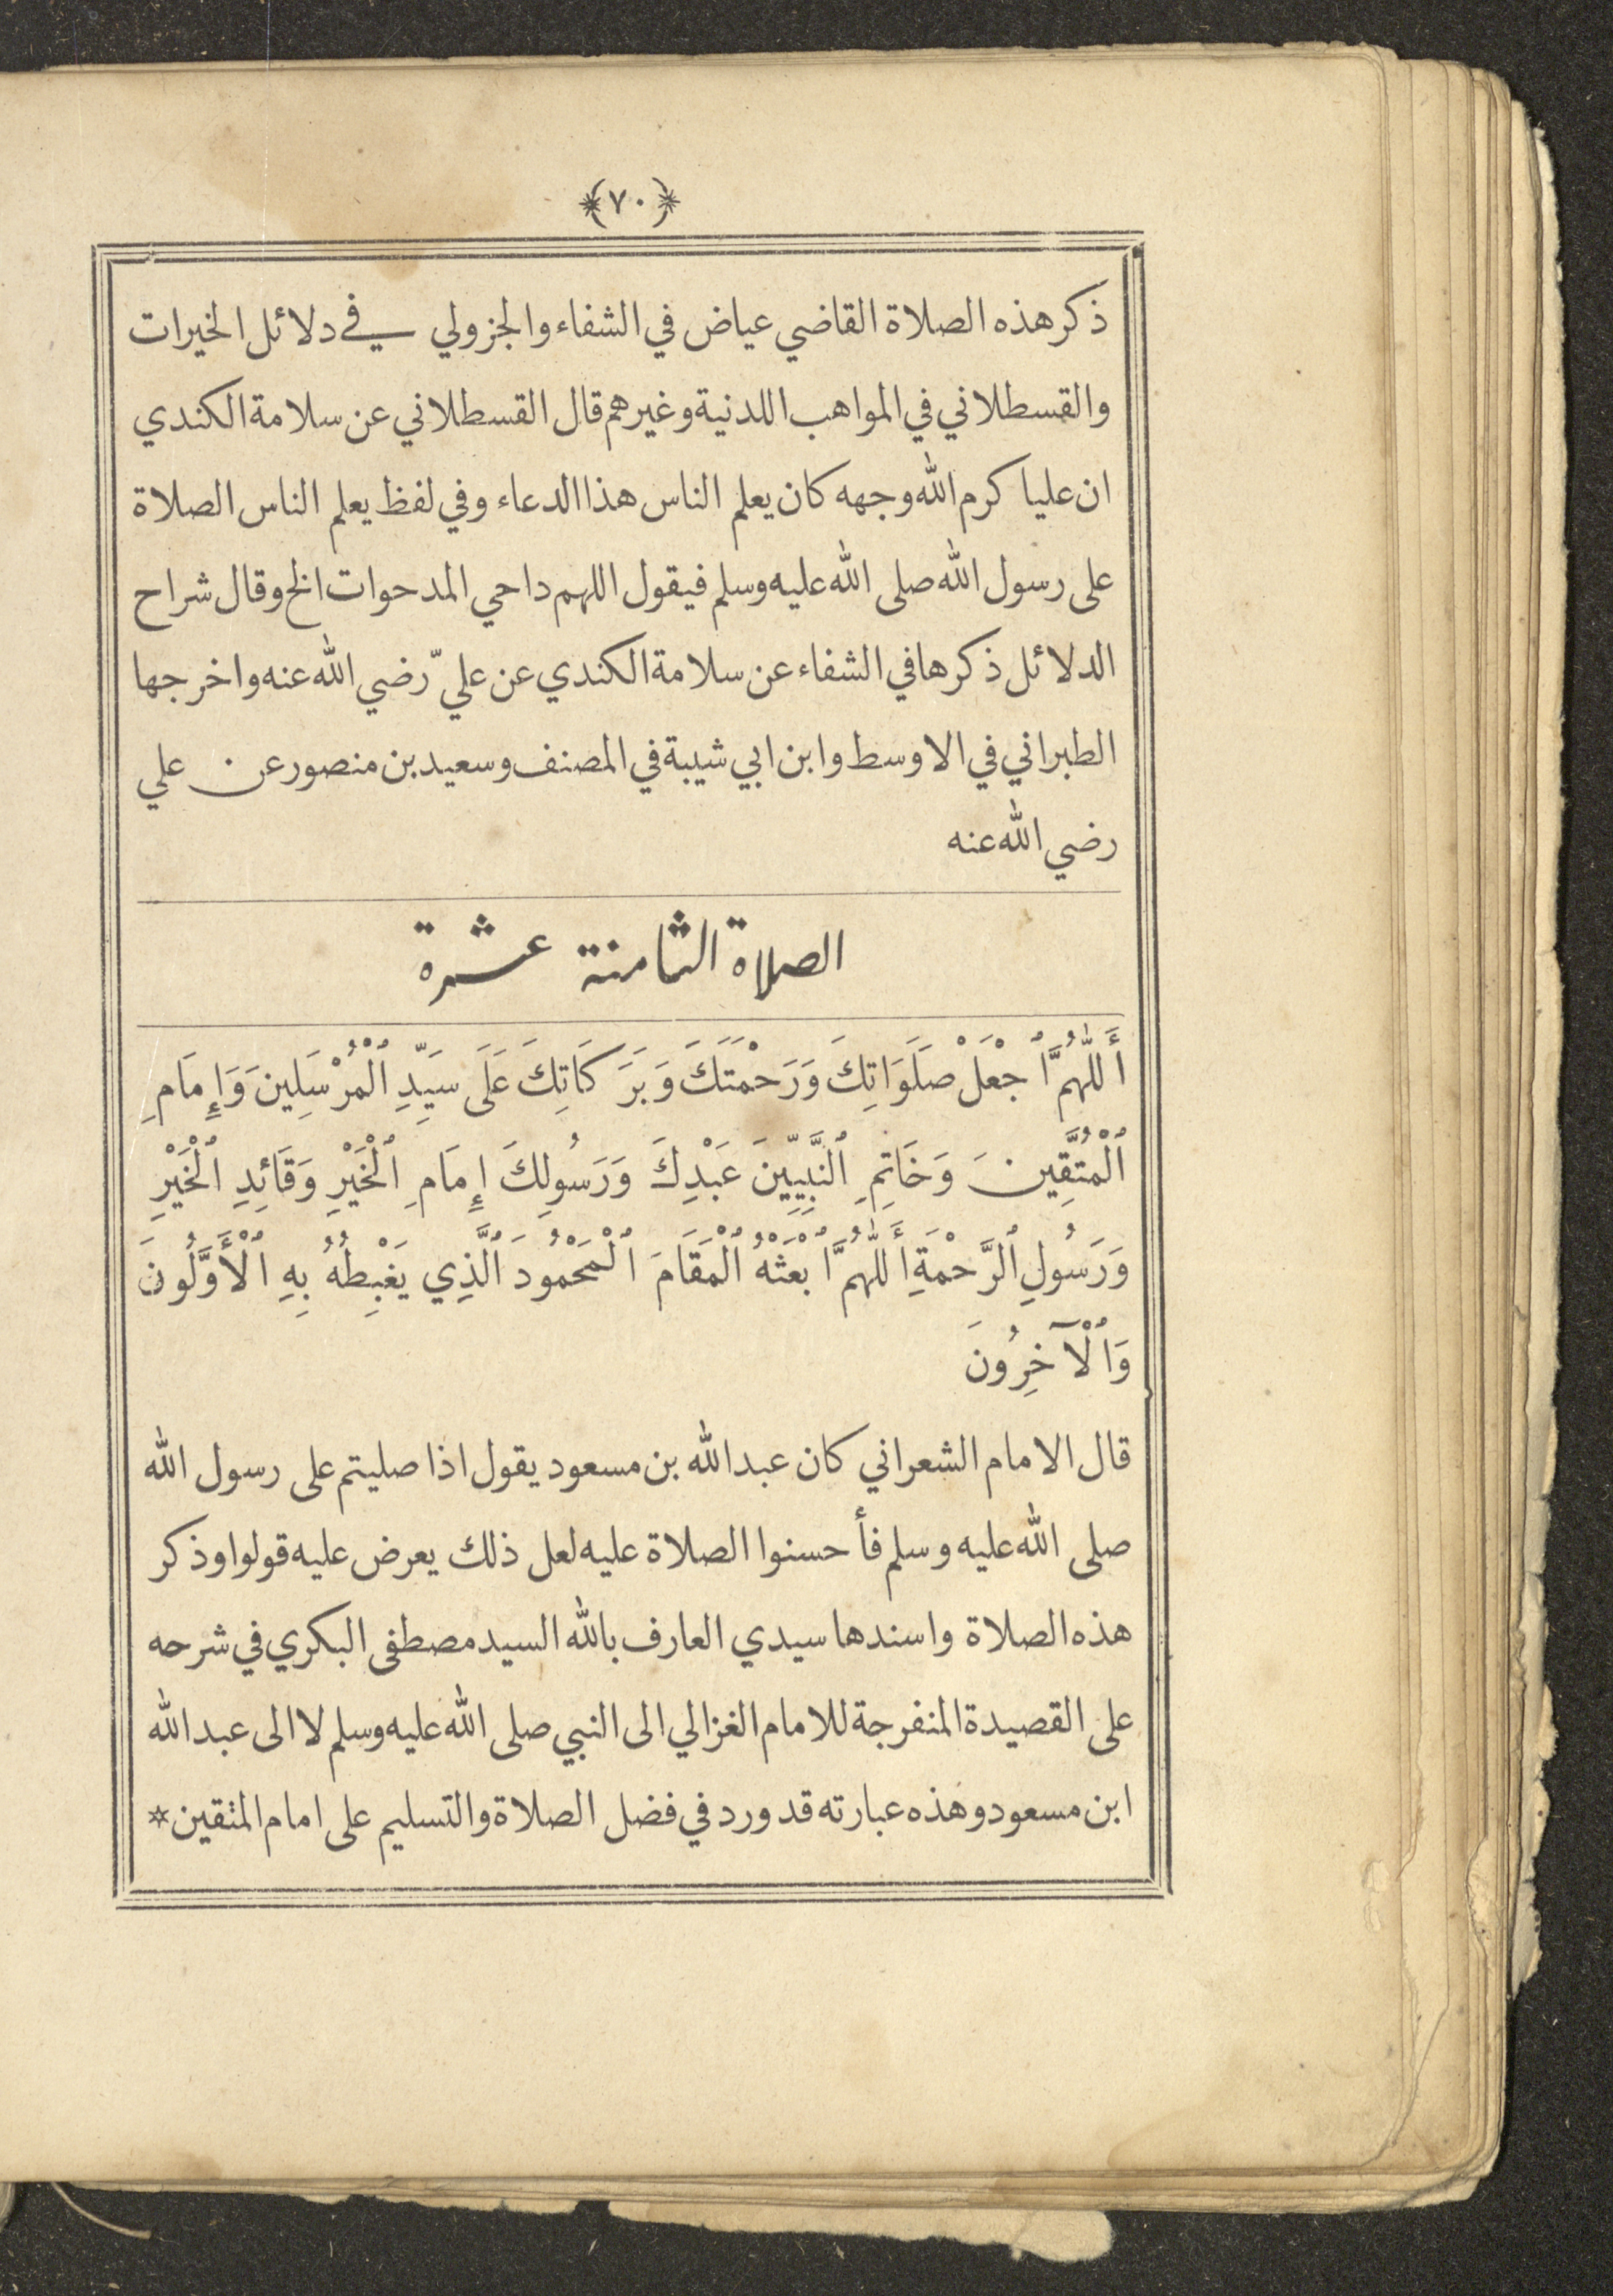 ﴿٧٠﴾
ذكر هذه الصلاة القاضي عياض في الشفاء والجزولي في دلائل الخيرات
والقسطلاني في المواهب اللدنية وغيرهم قال القسطلاني عن سلامة الكندي
ان عليا كرم الله وجهه كان يعلم الناس هذا الدعاء وفي لفظ يعلم الناس الصلاة
على رسول الله صلى الله عليه وسلم فيقول اللهم داحي المدحوات الخ وقال شراح
الدلائل ذكرها في الشفاء عن سلامة الكندي عن عليّ رضي الله عنه واخرجها
الطبراني في الاوسط وابن ابي شيبة في المصنف وسعيد بن منصور عن علي
رضي الله عنه
الصلاة الثامنة عشرة
أَللّٰهُمَّ ٱجْعَلْ صَلَوَاتِكَ وَرَحْمَتَكَ وَبَرَكَاتِكَ عَلَى سَيِّدِ ٱلْمُرْسَلِينَ وَإِمَامِ
ٱلْمُتَّقِينَ وَخَاتِمِ ٱلنَّبِيِّينَ عَبْدِكَ وَرَسُولِكَ إِمَامِ ٱلْخَيْرِ وَقَائِدِ ٱلْخَيْرِ
وَرَسُولِ ٱلرَّحْمَةِ أَللّٰهُمَّ ٱبْعَثْهُ ٱلْمَقَامَ ٱلْمَحْمُودَ ٱلَّذِي يَغْبِطُهُ بِهِ ٱلْأَوَّلُونَ
وَٱلْآخِرُونَ
قال الامام الشعراني كان عبد الله بن مسعود يقول اذا صليتم على رسول الله
صلى الله عليه وسلم فأحسنوا الصلاة عليه لعل ذلك يعرض عليه قولوا وذكر
هذه الصلاة واسندها سيدي العارف بالله السيد مصطفى البكري في شرحه
على القصيدة المنفرجة للامام الغزالي الى النبي صلى الله عليه وسلم لا الى عبد الله
ابن مسعود وهذه عبارته قد ورد في فضل الصلاة والتسليم على امام المتقين *